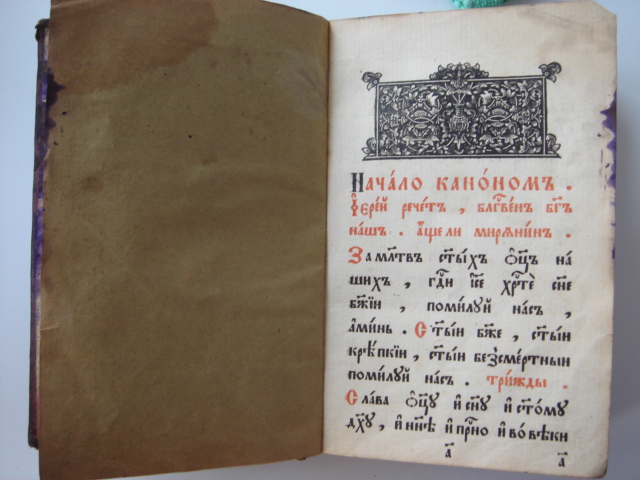 Нача́ло кано́номъ .
І҆ере́й рече́тъ , бл҃гве́нъ бг҃ъ
на́шъ . а҆́ще ли миря́нинъ .
За мл҃твъ ст҃ы́хъ ѻ҆ц҃ъ на
шихъ , гд҃и і҆с҃е хрⷭ҇тѐ сн҃е
бж҃їи , поми́лꙋй на́съ ,
а҆ми́нь . Ст҃ы́и бж҃е , ст҃ы́и
крѣ́пкїи , ст҃ы́и безсме́ртныи
поми́лꙋй на́съ . три́жды .
Сла́ва ѻ҆ц҃ꙋ̀ и҆ сн҃ꙋ и҆ ст҃о́мꙋ
дх҃ꙋ , и҆ нн҃ѣ и҆ прⷭ҇но и҆ во́ вѣки
а҃
а҃